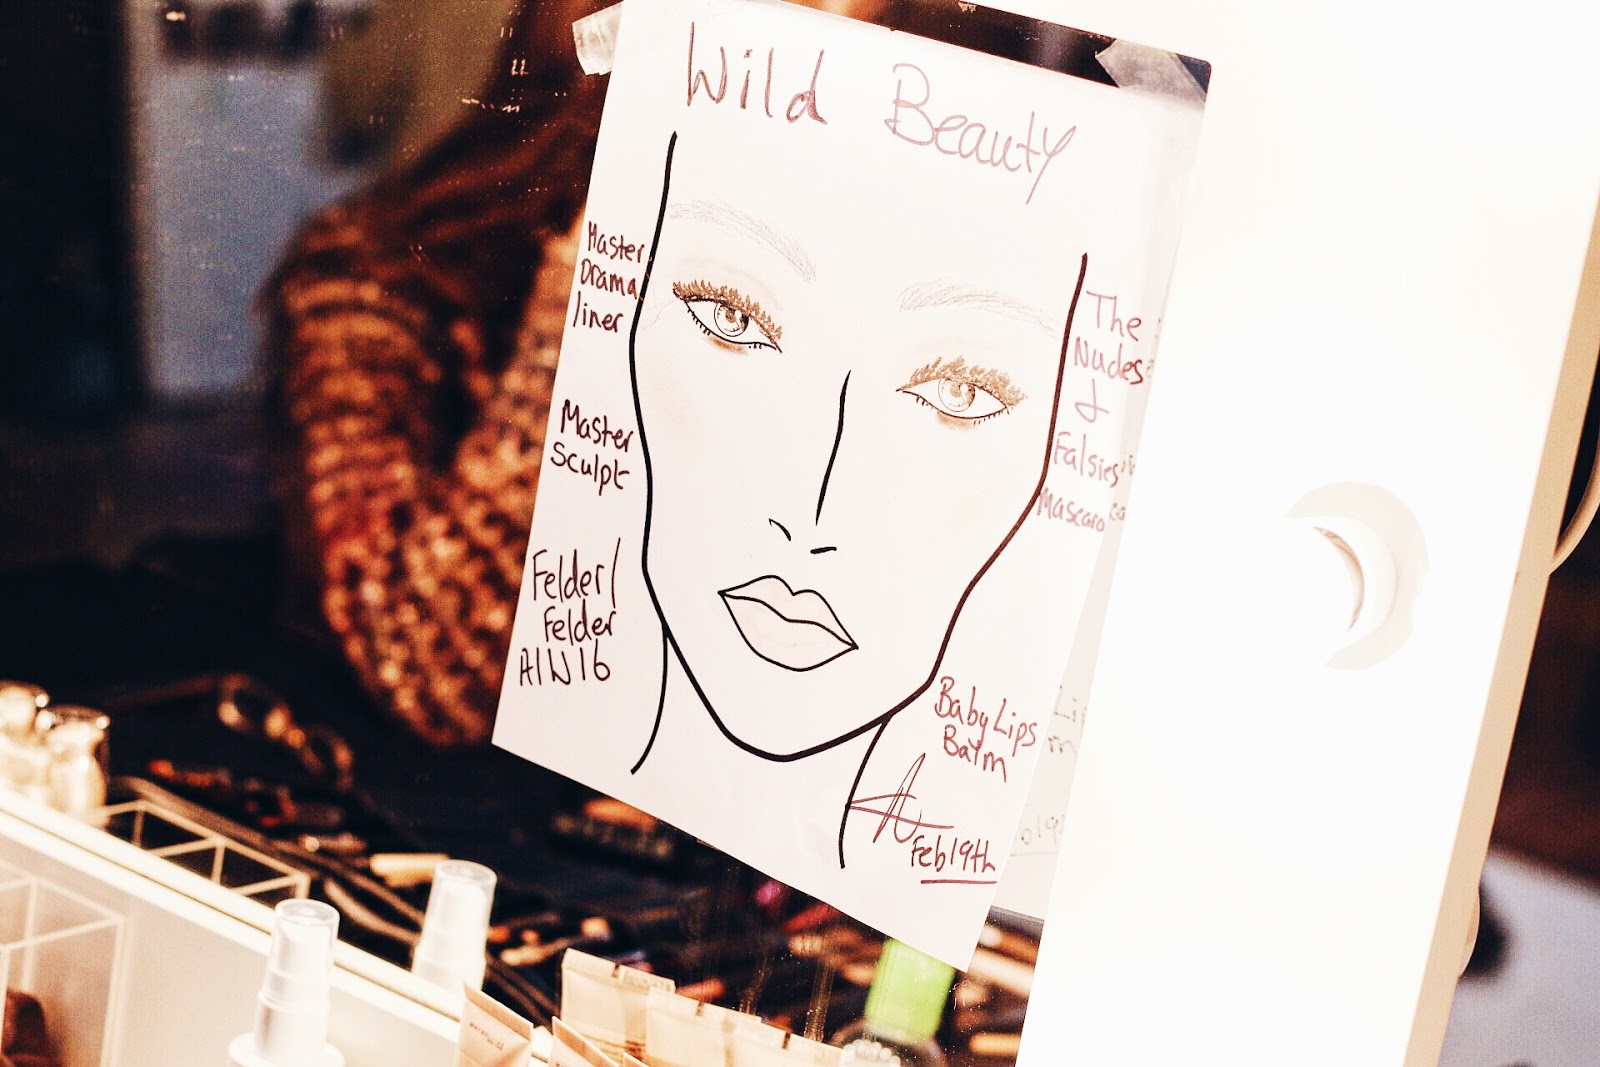 Wild Beauty
Master
Drama
liner
Master
Sculpt
Felder/
Felder
A/W16
The
Nudes
&
Falsies
Mascara
Baby Lips
Balm
Feb 19th